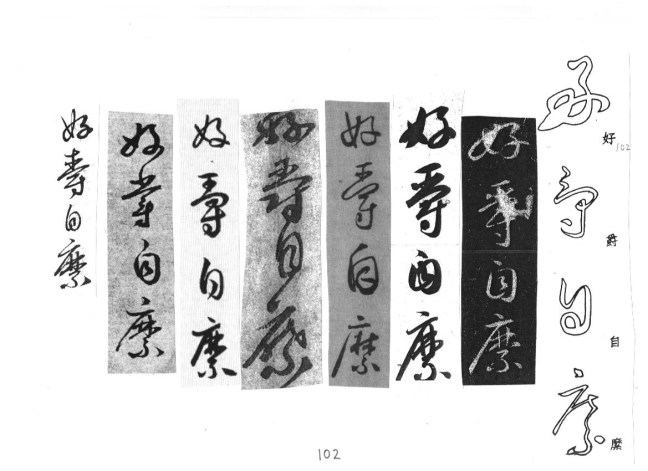 好爵自縻
好 102
爵
自
縻
好爵自縻
好爵自縻
好爵自縻
好爵自縻
好爵自縻
好爵自縻
好爵自縻
102